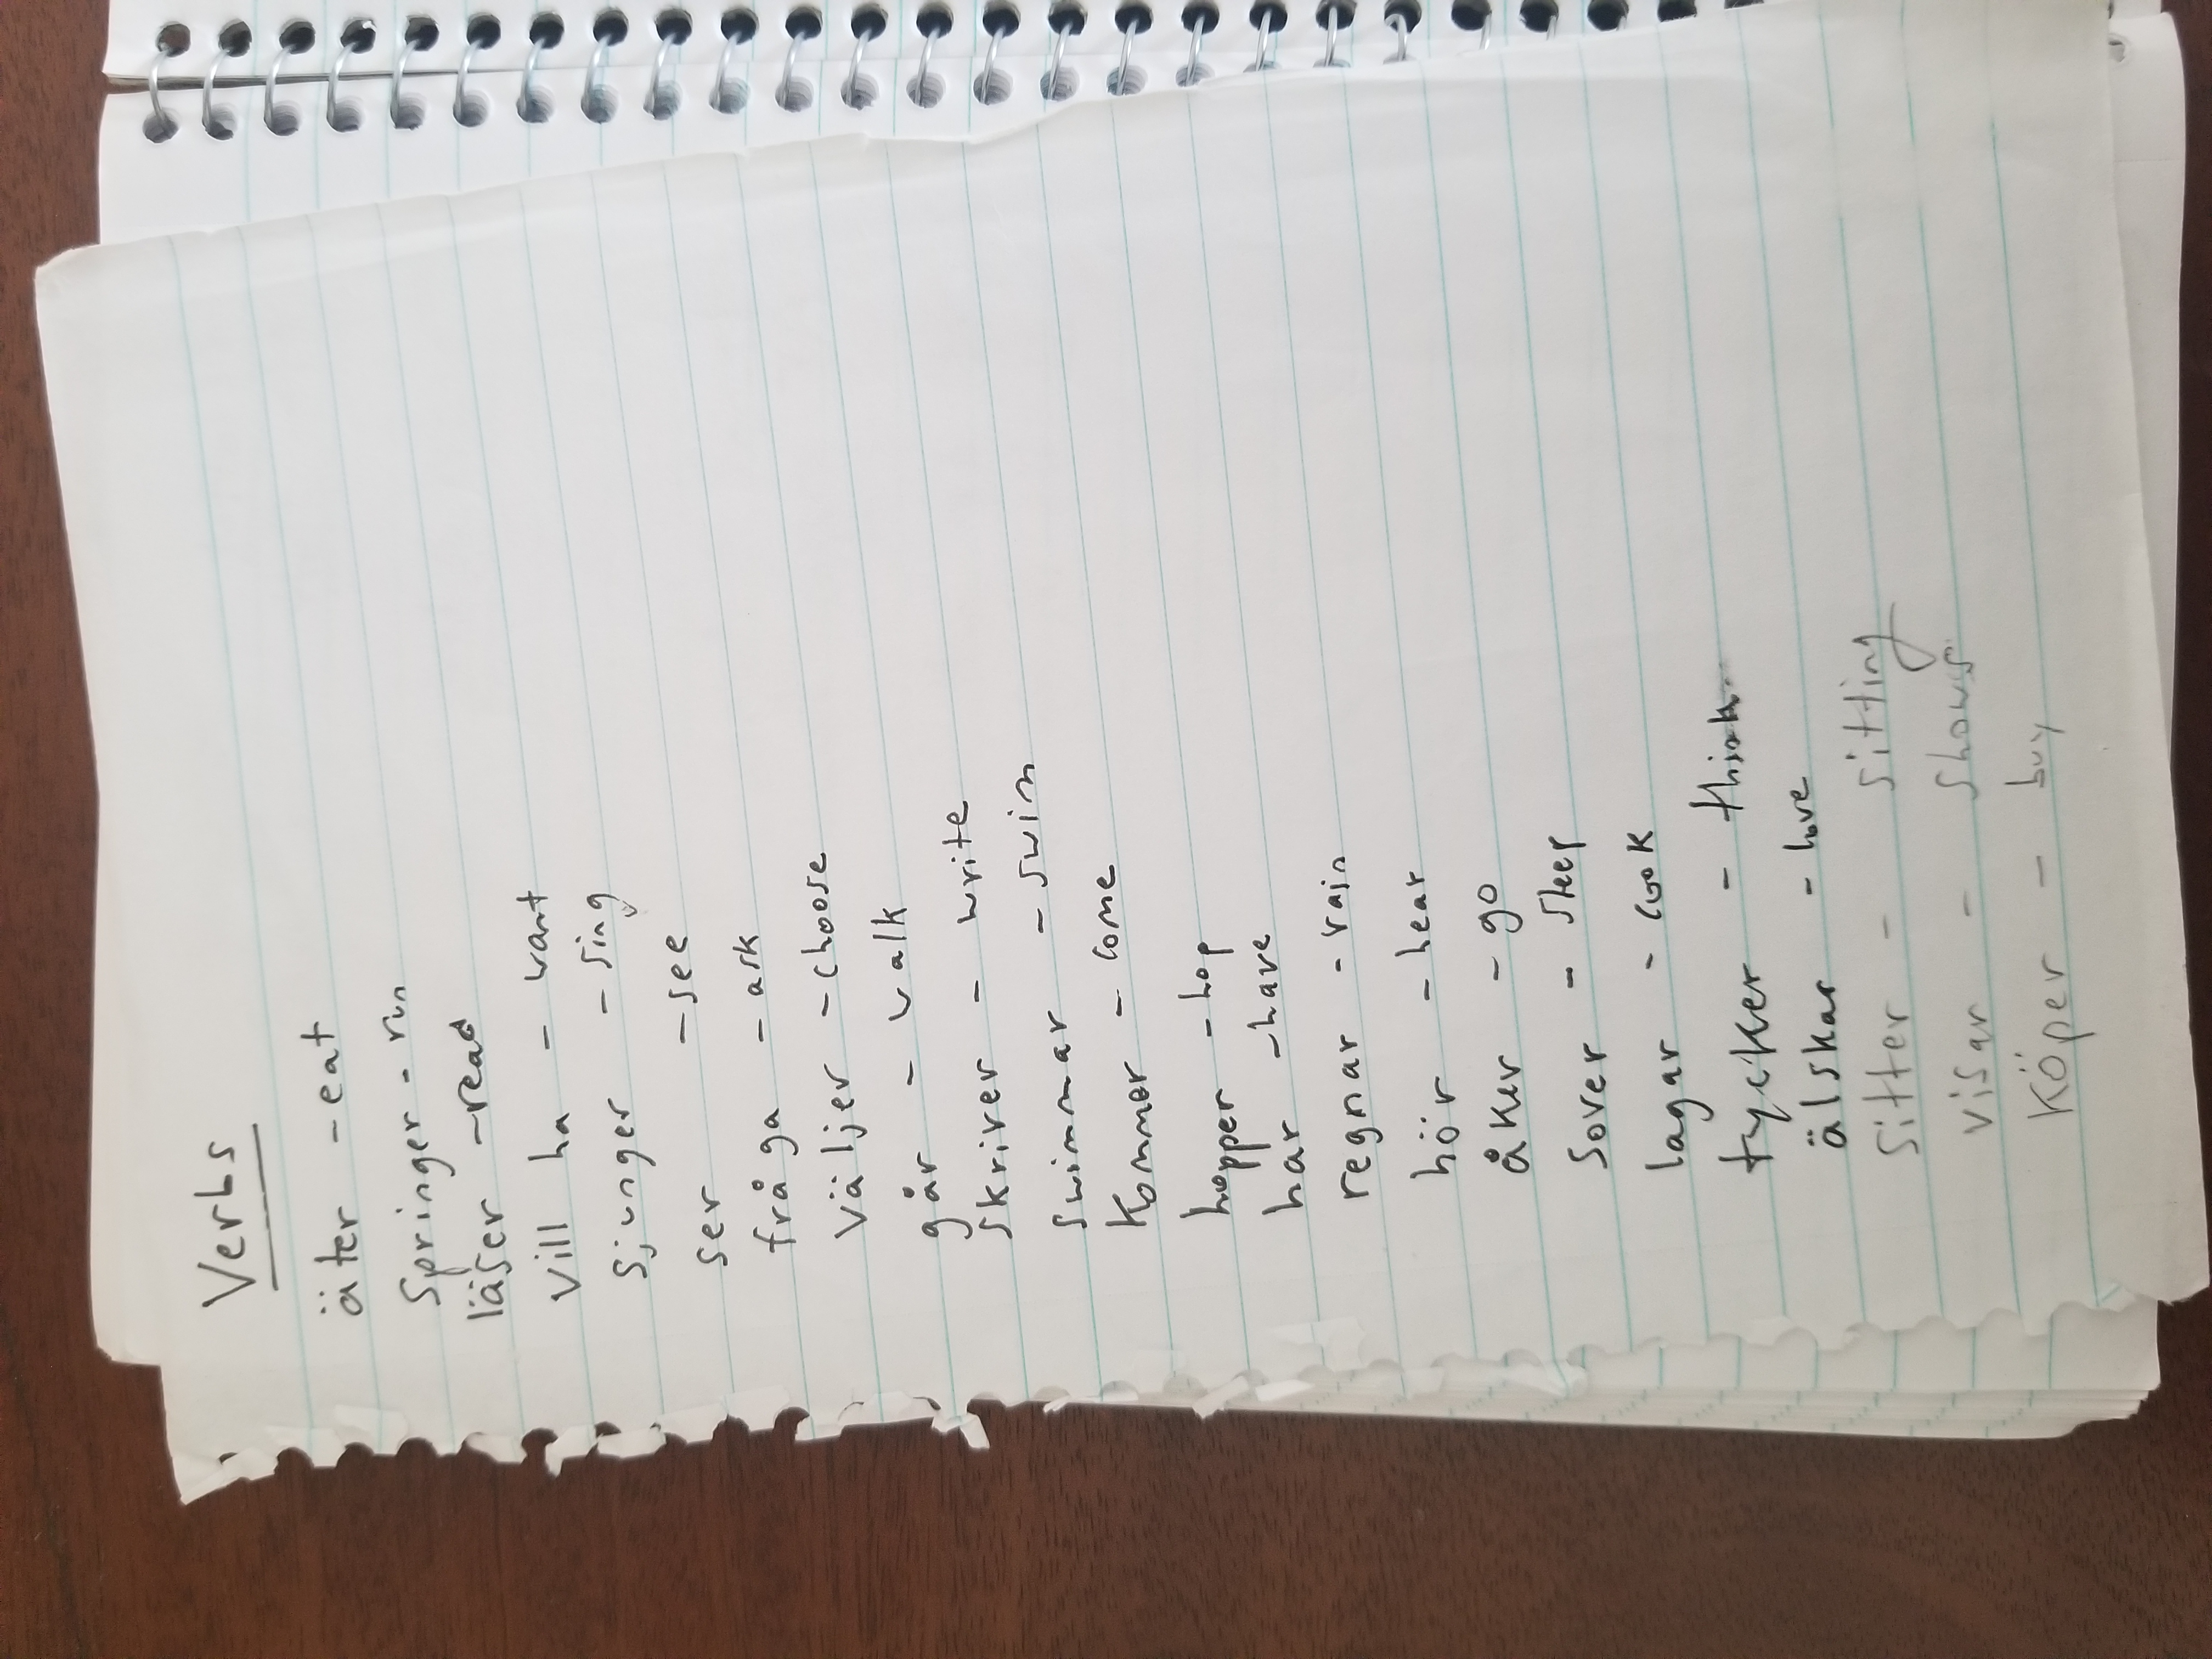 Verbs
äter - eat
Springer - run
läser - read
vill ha - want
sjunger - sing
ser - see
fråga - ask
väljer - choose
går - walk
skriver - write
swimmar - swim
kommer - come
hopper - hop
har - have
regnar - rain
hör - hear
åker - go
sover - sleep
lagar - cook
tycker - think
älskar - love
sitter - sitting
visar - shows
köper - buy